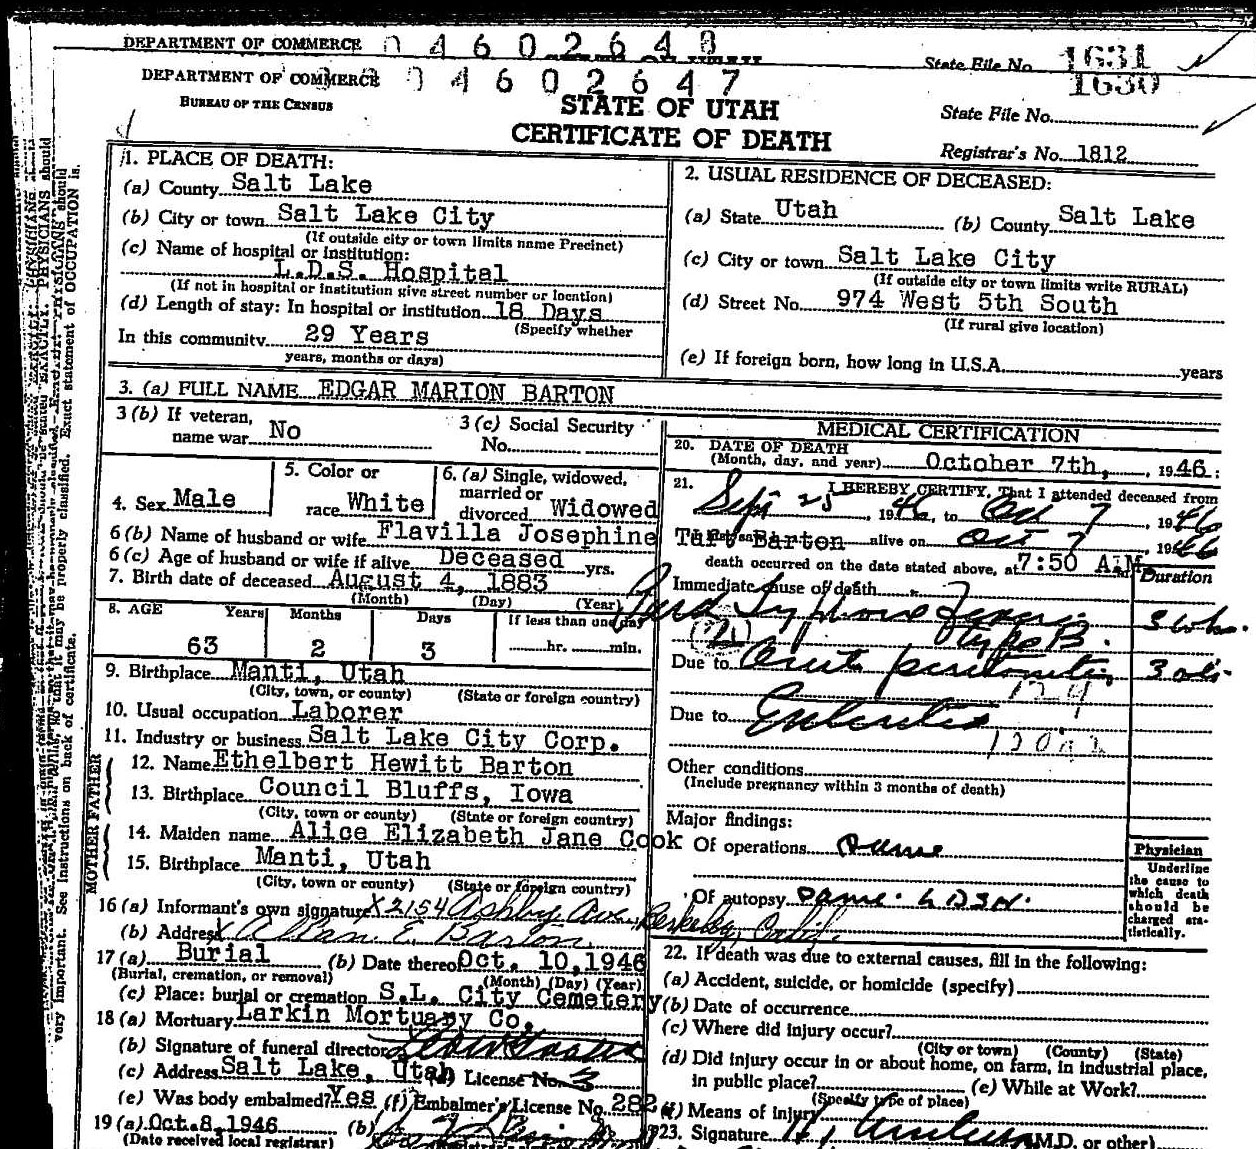 DEPARTMENT OF COMMERCE 0 4 6 0 2 6 4 8
State File No. 1631
DEPARTMENT OF COMMERCE 0 4 6 0 2 6 4 7
1630
BUREAU OF THE CENSUS
STATE OF UTAH
State File No.
CERTIFICATE OF DEATH
Registrar's No. 1812
1. PLACE OF DEATH:
(a) County Salt Lake
(b) City or town Salt Lake City
(If outside city or town limits name Precinct)
(c) Name of hospital or institution:
L.D.S. Hospital
(If not in hospital or institution give street number or location)
(d) Length of stay: In hospital or institution 18 Days
(Specify whether
In this community 29 Years
years, months or days)
2. USUAL RESIDENCE OF DECEASED:
(a) State Utah (b) County Salt Lake
(c) City or town Salt Lake City
(If outside city or town limits write RURAL)
(d) Street No. 974 West 5th South
(If rural give location)
(e) If foreign born, how long in U.S.A. years
3. (a) FULL NAME EDGAR MARION BARTON
3 (b) If veteran, name war No
3 (c) Social Security No.
4. Sex Male
5. Color or race White
6. (a) Single, widowed, married or divorced Widowed
6 (b) Name of husband or wife Flavilla Josephine
Taft Barton
6 (c) Age of husband or wife if alive Deceased yrs.
7. Birth date of deceased August 4, 1883
(Month) (Day) (Year)
8. AGE Years Months Days If less than one day
63 2 3 hr. min.
9. Birthplace Manti, Utah
(City, town, or county) (State or foreign country)
10. Usual occupation Laborer
11. Industry or business Salt Lake City Corp.
FATHER
12. Name Ethelbert Hewitt Barton
13. Birthplace Council Bluffs, Iowa
(City, town or county) (State or foreign country)
MOTHER
14. Maiden name Alice Elizabeth Jane Cook
15. Birthplace Manti, Utah
(City, town or county) (State or foreign country)
16 (a) Informant's own signature X 2154 Ashby Ave. Berkeley, Calif.
(b) Address X Allan E. Barton
17 (a) Burial (b) Date thereof Oct. 10, 1946
(Burial, cremation, or removal) (Month) (Day) (Year)
(c) Place: burial or cremation S.L. City Cemetery
18 (a) Mortuary Larkin Mortuary Co.
(b) Signature of funeral director
(c) Address Salt Lake, Utah (d) License No. 3
(e) Was body embalmed? Yes (f) Embalmer's License No. 282
19 (a) Oct. 8, 1946 (b)
(Date received local registrar)
MEDICAL CERTIFICATION
20. DATE OF DEATH
(Month, day, and year) October 7th, 1946
21. I HEREBY CERTIFY, That I attended deceased from
Sept 25 1946, to Oct 7, 1946
alive on Oct 7, 1946
death occurred on the date stated above, at 7:50 A.M.
Duration
Immediate cause of death
Para Typhoid
type B. 3 wks.
Due to Acute peritonitis 3
129
Due to Enteritis
Other conditions
(Include pregnancy within 3 months of death)
Major findings:
Of operations
Of autopsy
Physician
Underline the cause to which death should be charged statistically.
22. If death was due to external causes, fill in the following:
(a) Accident, suicide, or homicide (specify)
(b) Date of occurrence
(c) Where did injury occur?
(City or town) (County) (State)
(d) Did injury occur in or about home, on farm, in industrial place,
in public place? (e) While at Work?
(Specify type of place)
(f) Means of injury
23. Signature M.D. or other)
very important. See instructions on back of certificate.
PHYSICIANS should
properly classified. Exact statement of OCCUPATION is